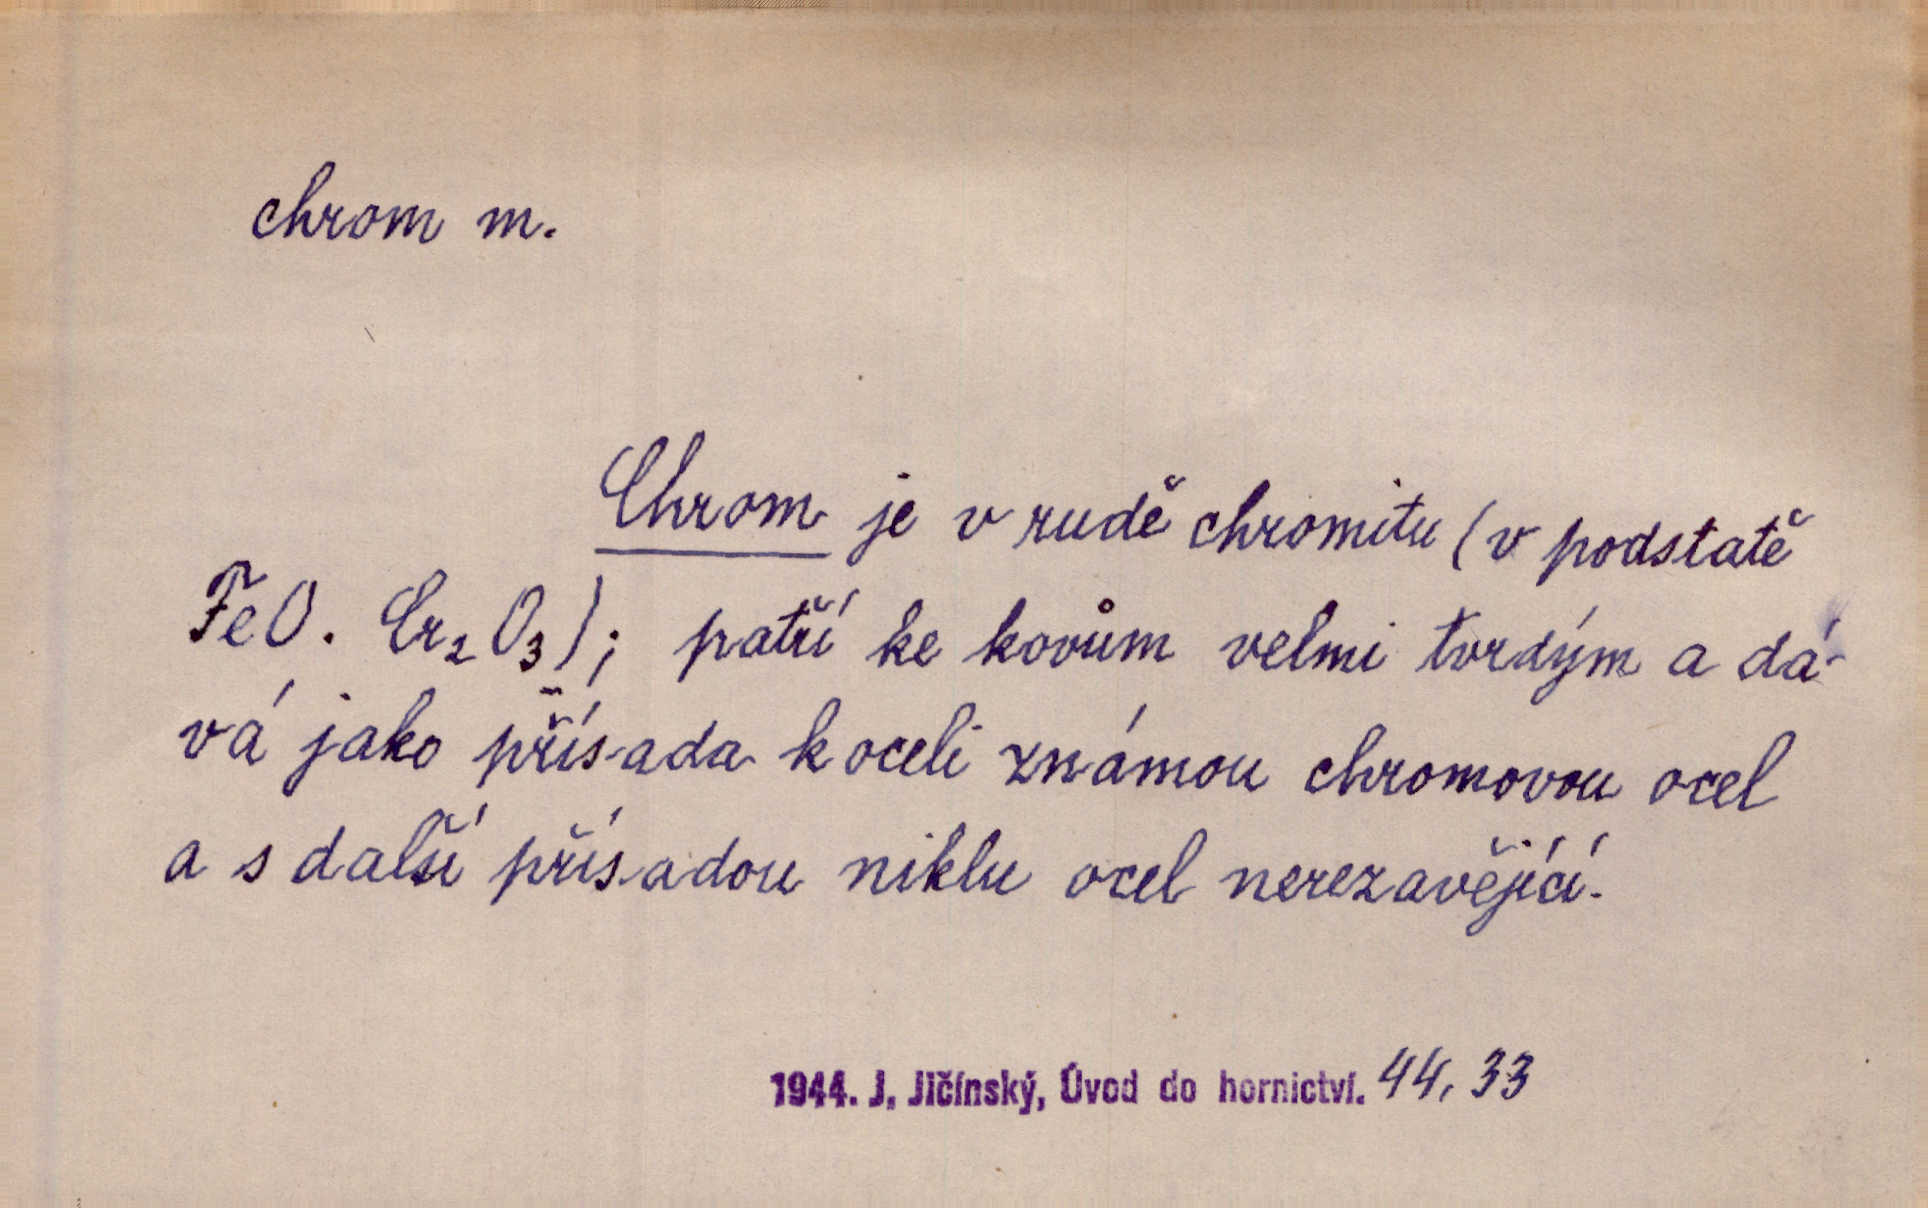 chrom m.
Chrom je v rudě chromitu (v podstatě
FeO. Cr₂O₃); patří ke kovům velmi tvrdým a dá-
vá jako přísada k oceli známou chromovou ocel
a s další přísadou niklu ocel nerezavějící.
1944. J. Jičínský, Úvod do hornictví. 44, 33